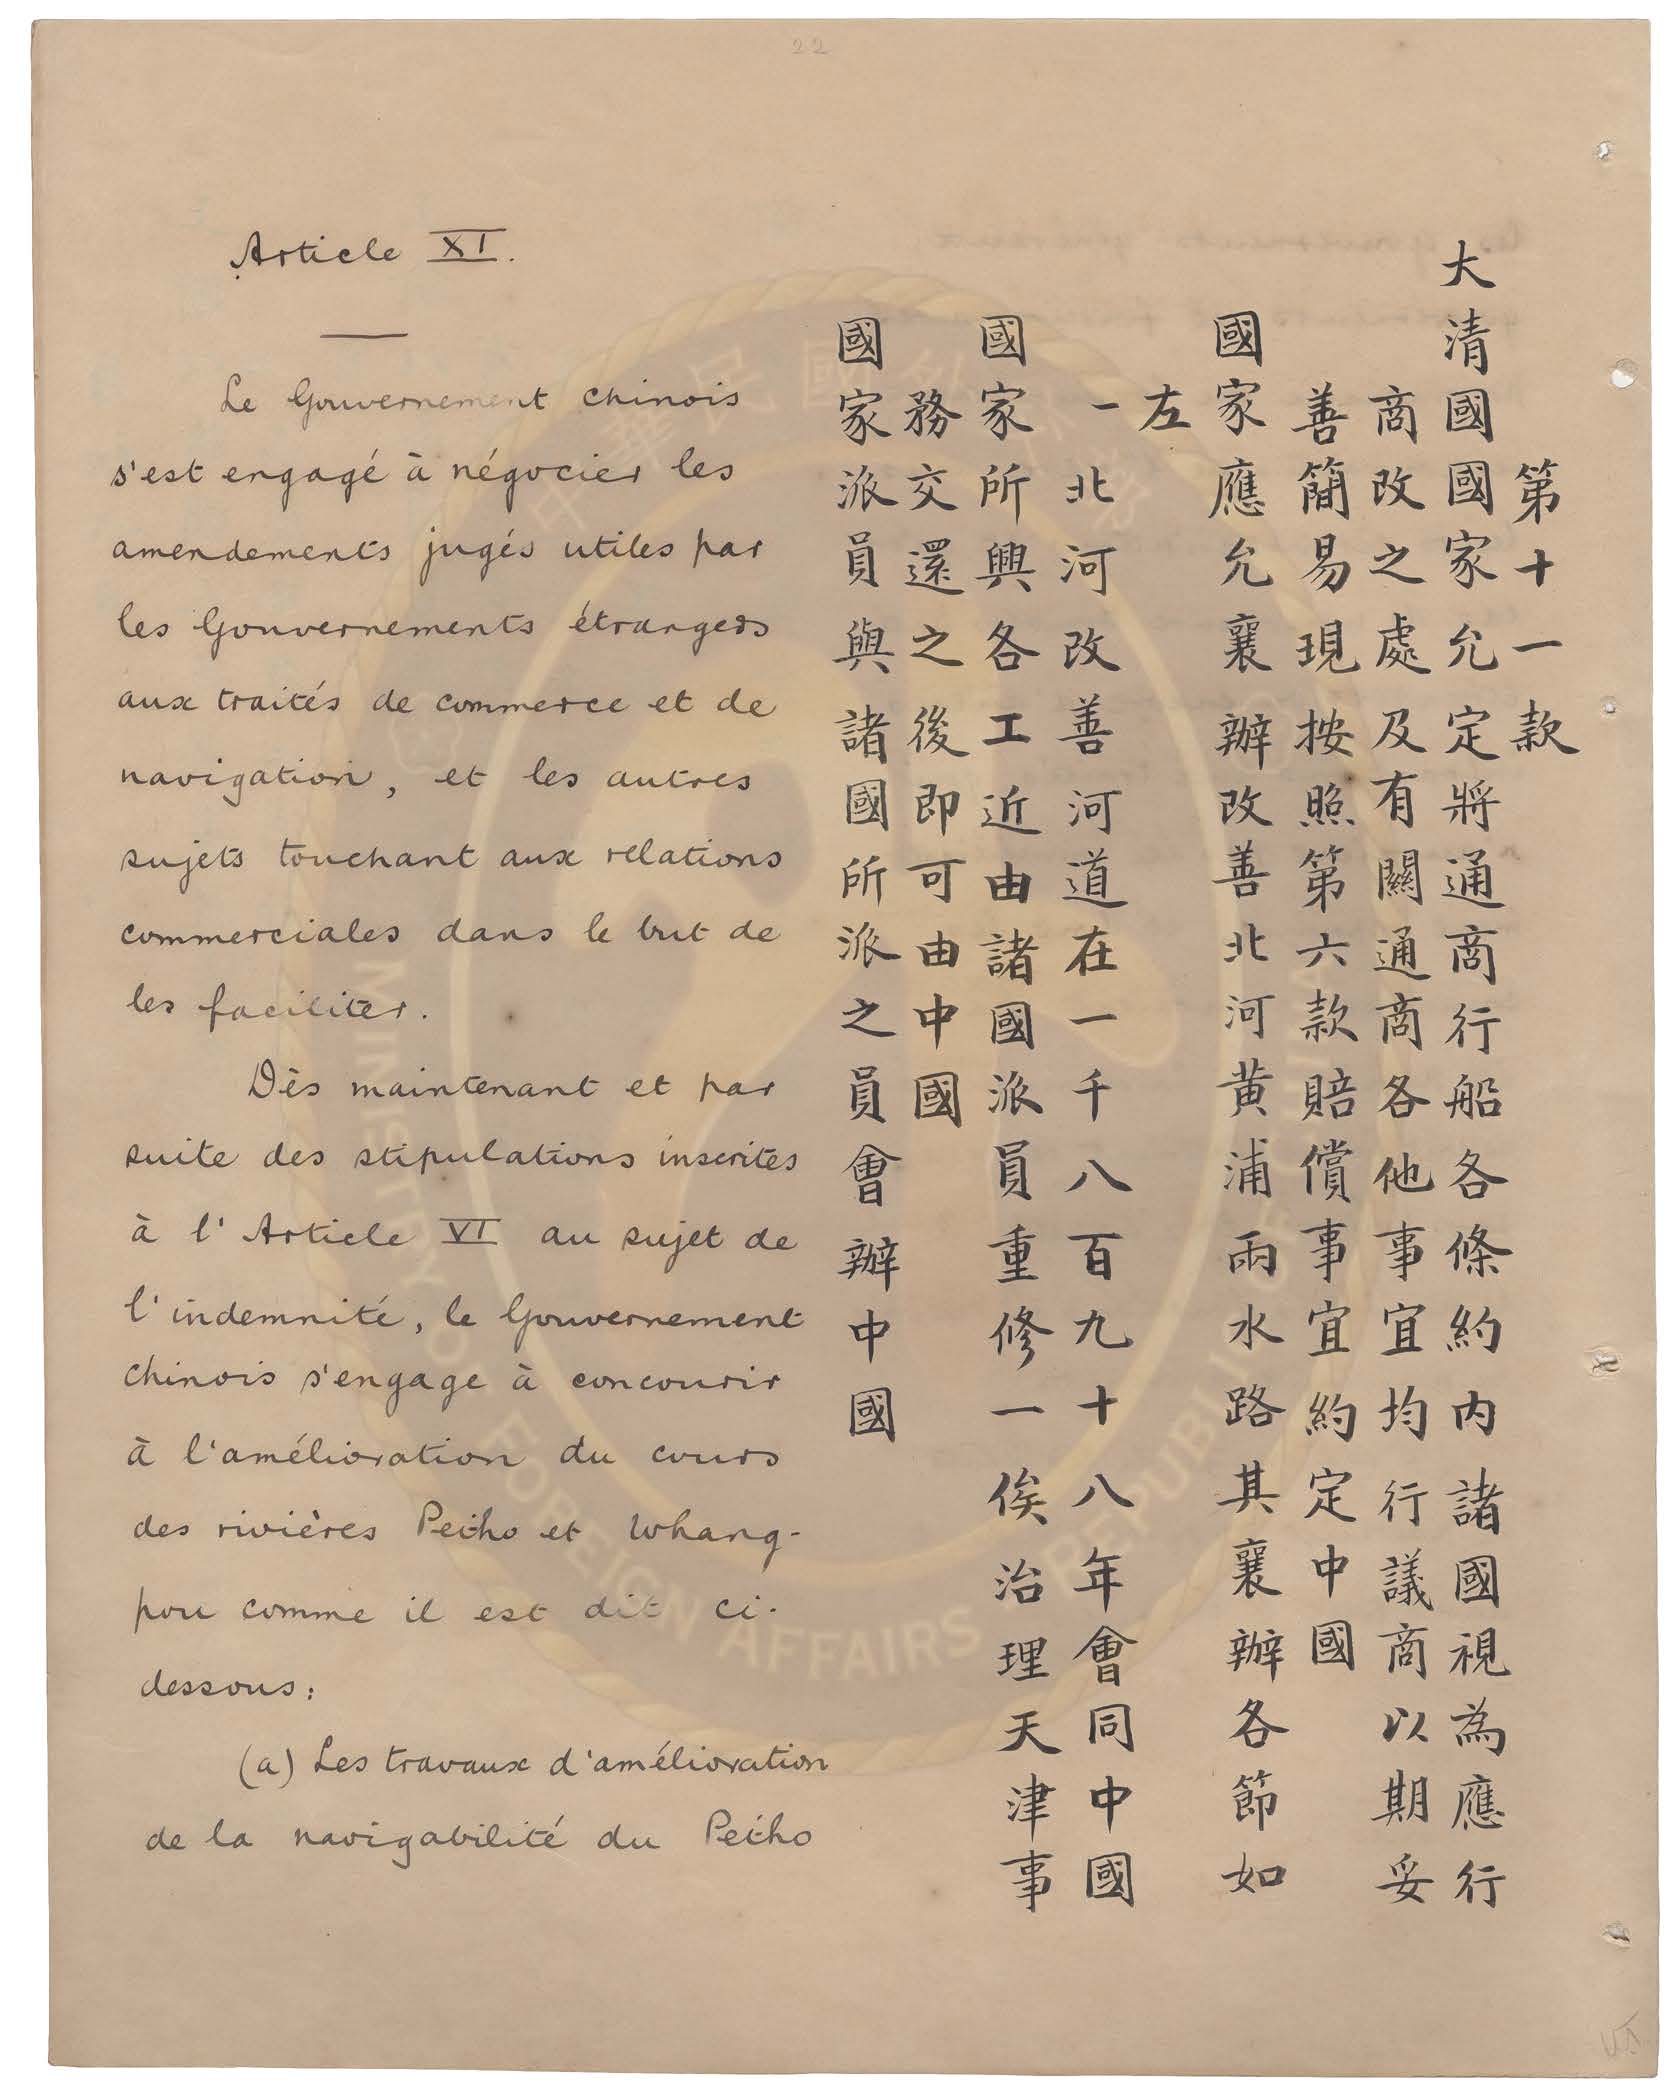 22
Article XI.
Le Gouvernement chinois
s'est engagé à négocier les
amendements jugés utiles par
les Gouvernements étrangers
aux traités de commerce et de
navigation, et les autres
sujets touchant aux relations
commerciales dans le but de
les faciliter.
Dès maintenant et par
suite des stipulations inscrites
à l'Article VI au sujet de
l'indemnité, le Gouvernement
chinois s'engage à concourir
à l'amélioration du cours
des rivières Peiho et Whang-
pou comme il est dit ci-
dessous:
(a) Les travaux d'amélioration
de la navigabilité du Peiho
第十一款
大清國國家允定將通商行船各條約內諸國視為應行
商改之處及有關通商各他事宜均行議商以期妥
善簡易現按照第六款賠償事宜約定中國
國家應允襄辦改善北河黃浦兩水路其襄辦各節如
左
一北河改善河道在一千八百九十八年會同中國
國家所興各工近由諸國派員重修一俟治理天津事
務交還之後即可由中國
國家派員與諸國所派之員會辦中國
MINISTRY OF FOREIGN AFFAIRS
REPUBLIC